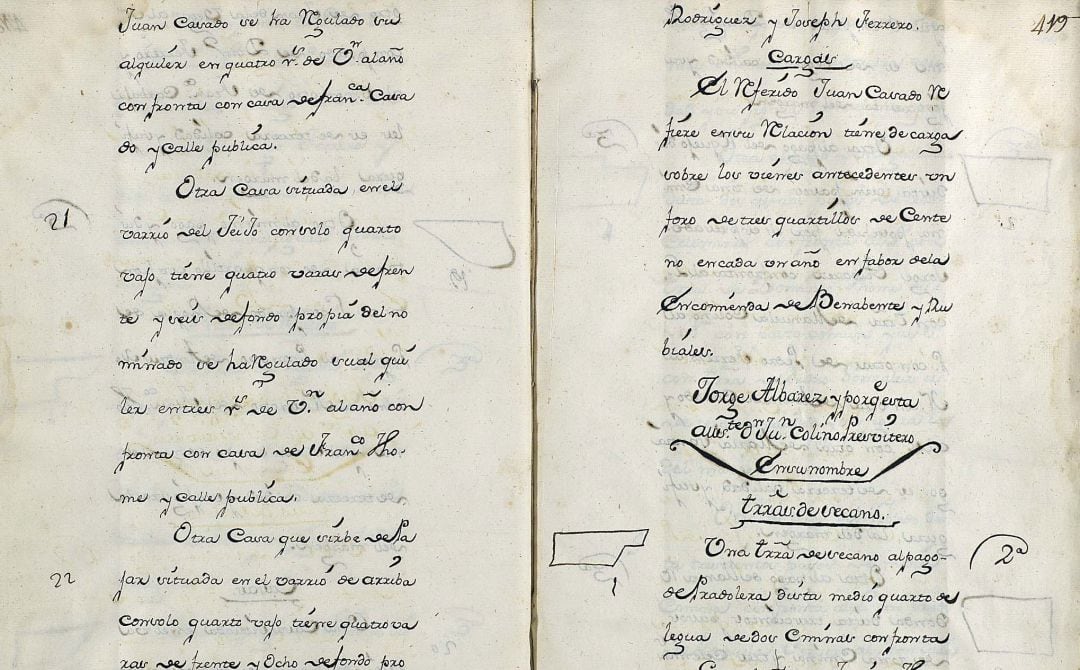 Juan Casado se ha Rgulado su
alquiler en quatro rs. de Vn. al año
confronta con casa de fran.ca Casa
do y Calle publica.
21
Otra Casa situada en el
varrio del Teijo con solo quarto
vajo tiene quatro varas de fren
te y seis de fondo propia del no
minado se ha Rgulado su al qui
ler en tres rs. de Vn. al año con
fronta con casa de Fran.co Tho
me y Calle publica.
22
Otra Casa que sirbe de Pa
jar situada en el varrio de arriba
con solo quarto vajo tiene quatro va
ras de frente y Ocho de fondo pro
419
Rodriguez y Joseph Ferrero.
Cargas
El Rferido Juan Casado R
fiere en su Rlacion tiene de carga
sobre los vienes antecedentes un
foro de tres quartillos de Cente
no en cada un año en fabor de la
Encomienda de Benabente y Ru
biales.
Jorge Albarez y por questa
aus.te Dn Jn. Colino Presvitero
En su nombre
trras de secano.
1
2a
Una trra de secano al pago
de Pradolera dista medio quarto de
legua de dos Eminas confronta